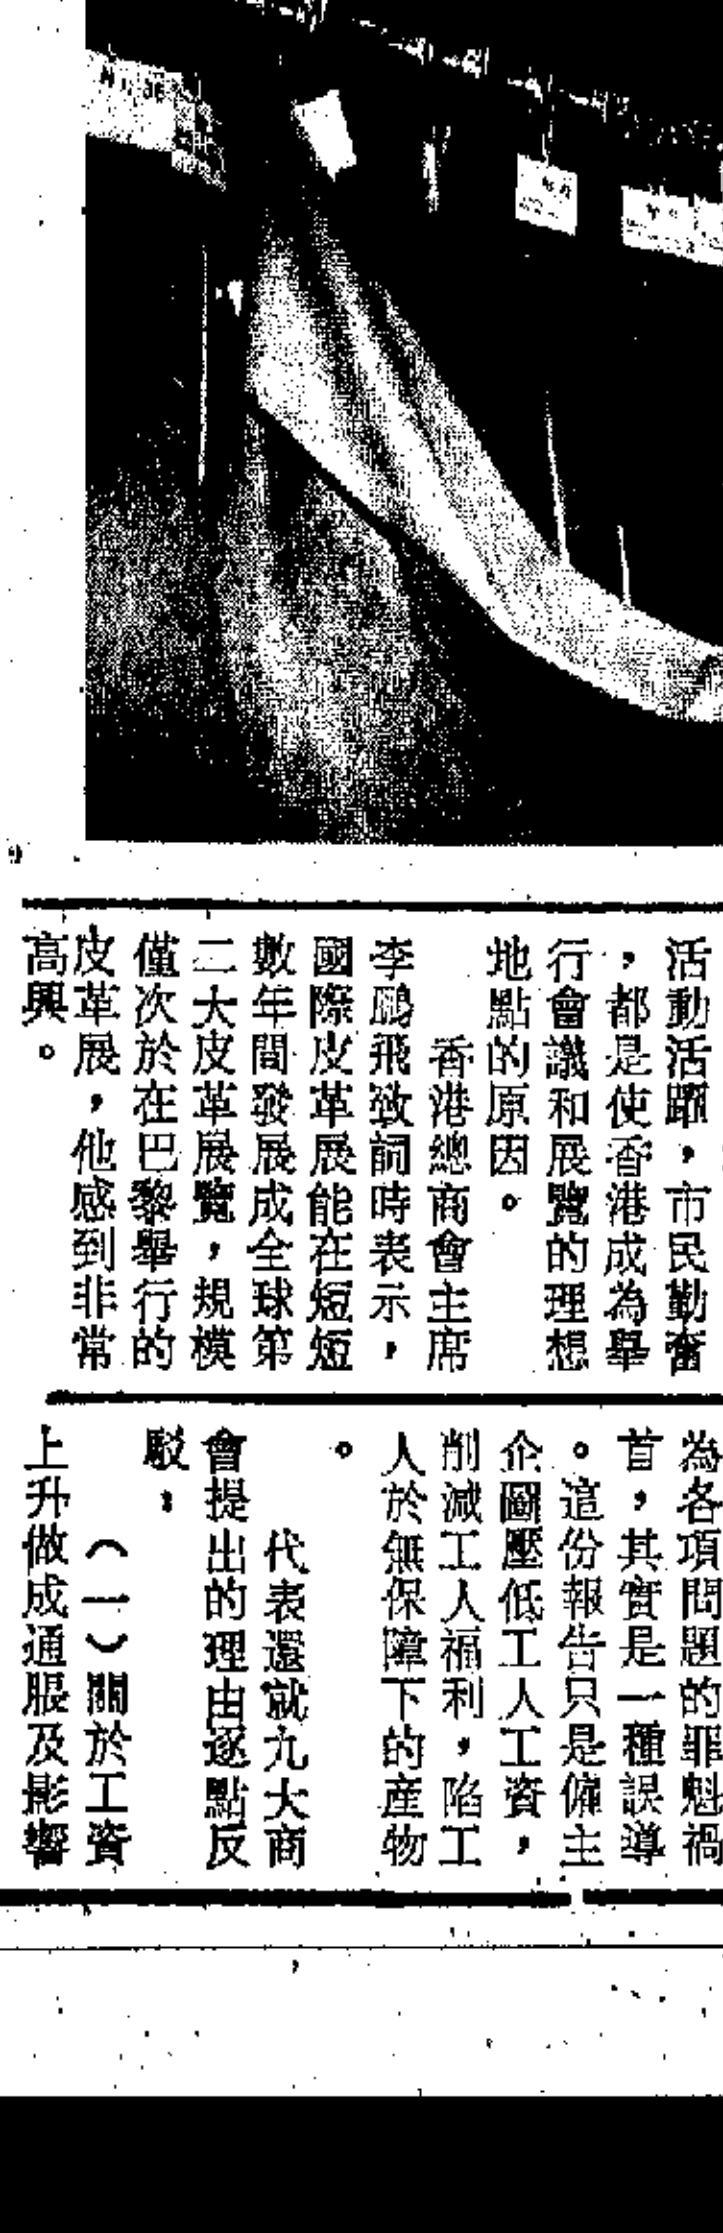 活動活躍，市民勤奮
，都是使香港成為舉
行會議和展覽的理想
地點的原因。
香港總商會主席
李鵬飛致詞時表示，
國際皮革展能在短短
數年間發展成全球第
二大皮革展覽，規模
僅次於在巴黎舉行的
皮革展，他感到非常
高興。
為各項問題的罪魁禍
首，其實是一種誤導
。這份報告只是僱主
企圖壓低工人工資，
削減工人福利，陷工
人於無保障下的產物
。
代表還就九大商
會提出的理由逐點反
駁：
（一）關於工資
上升做成通脹及影響